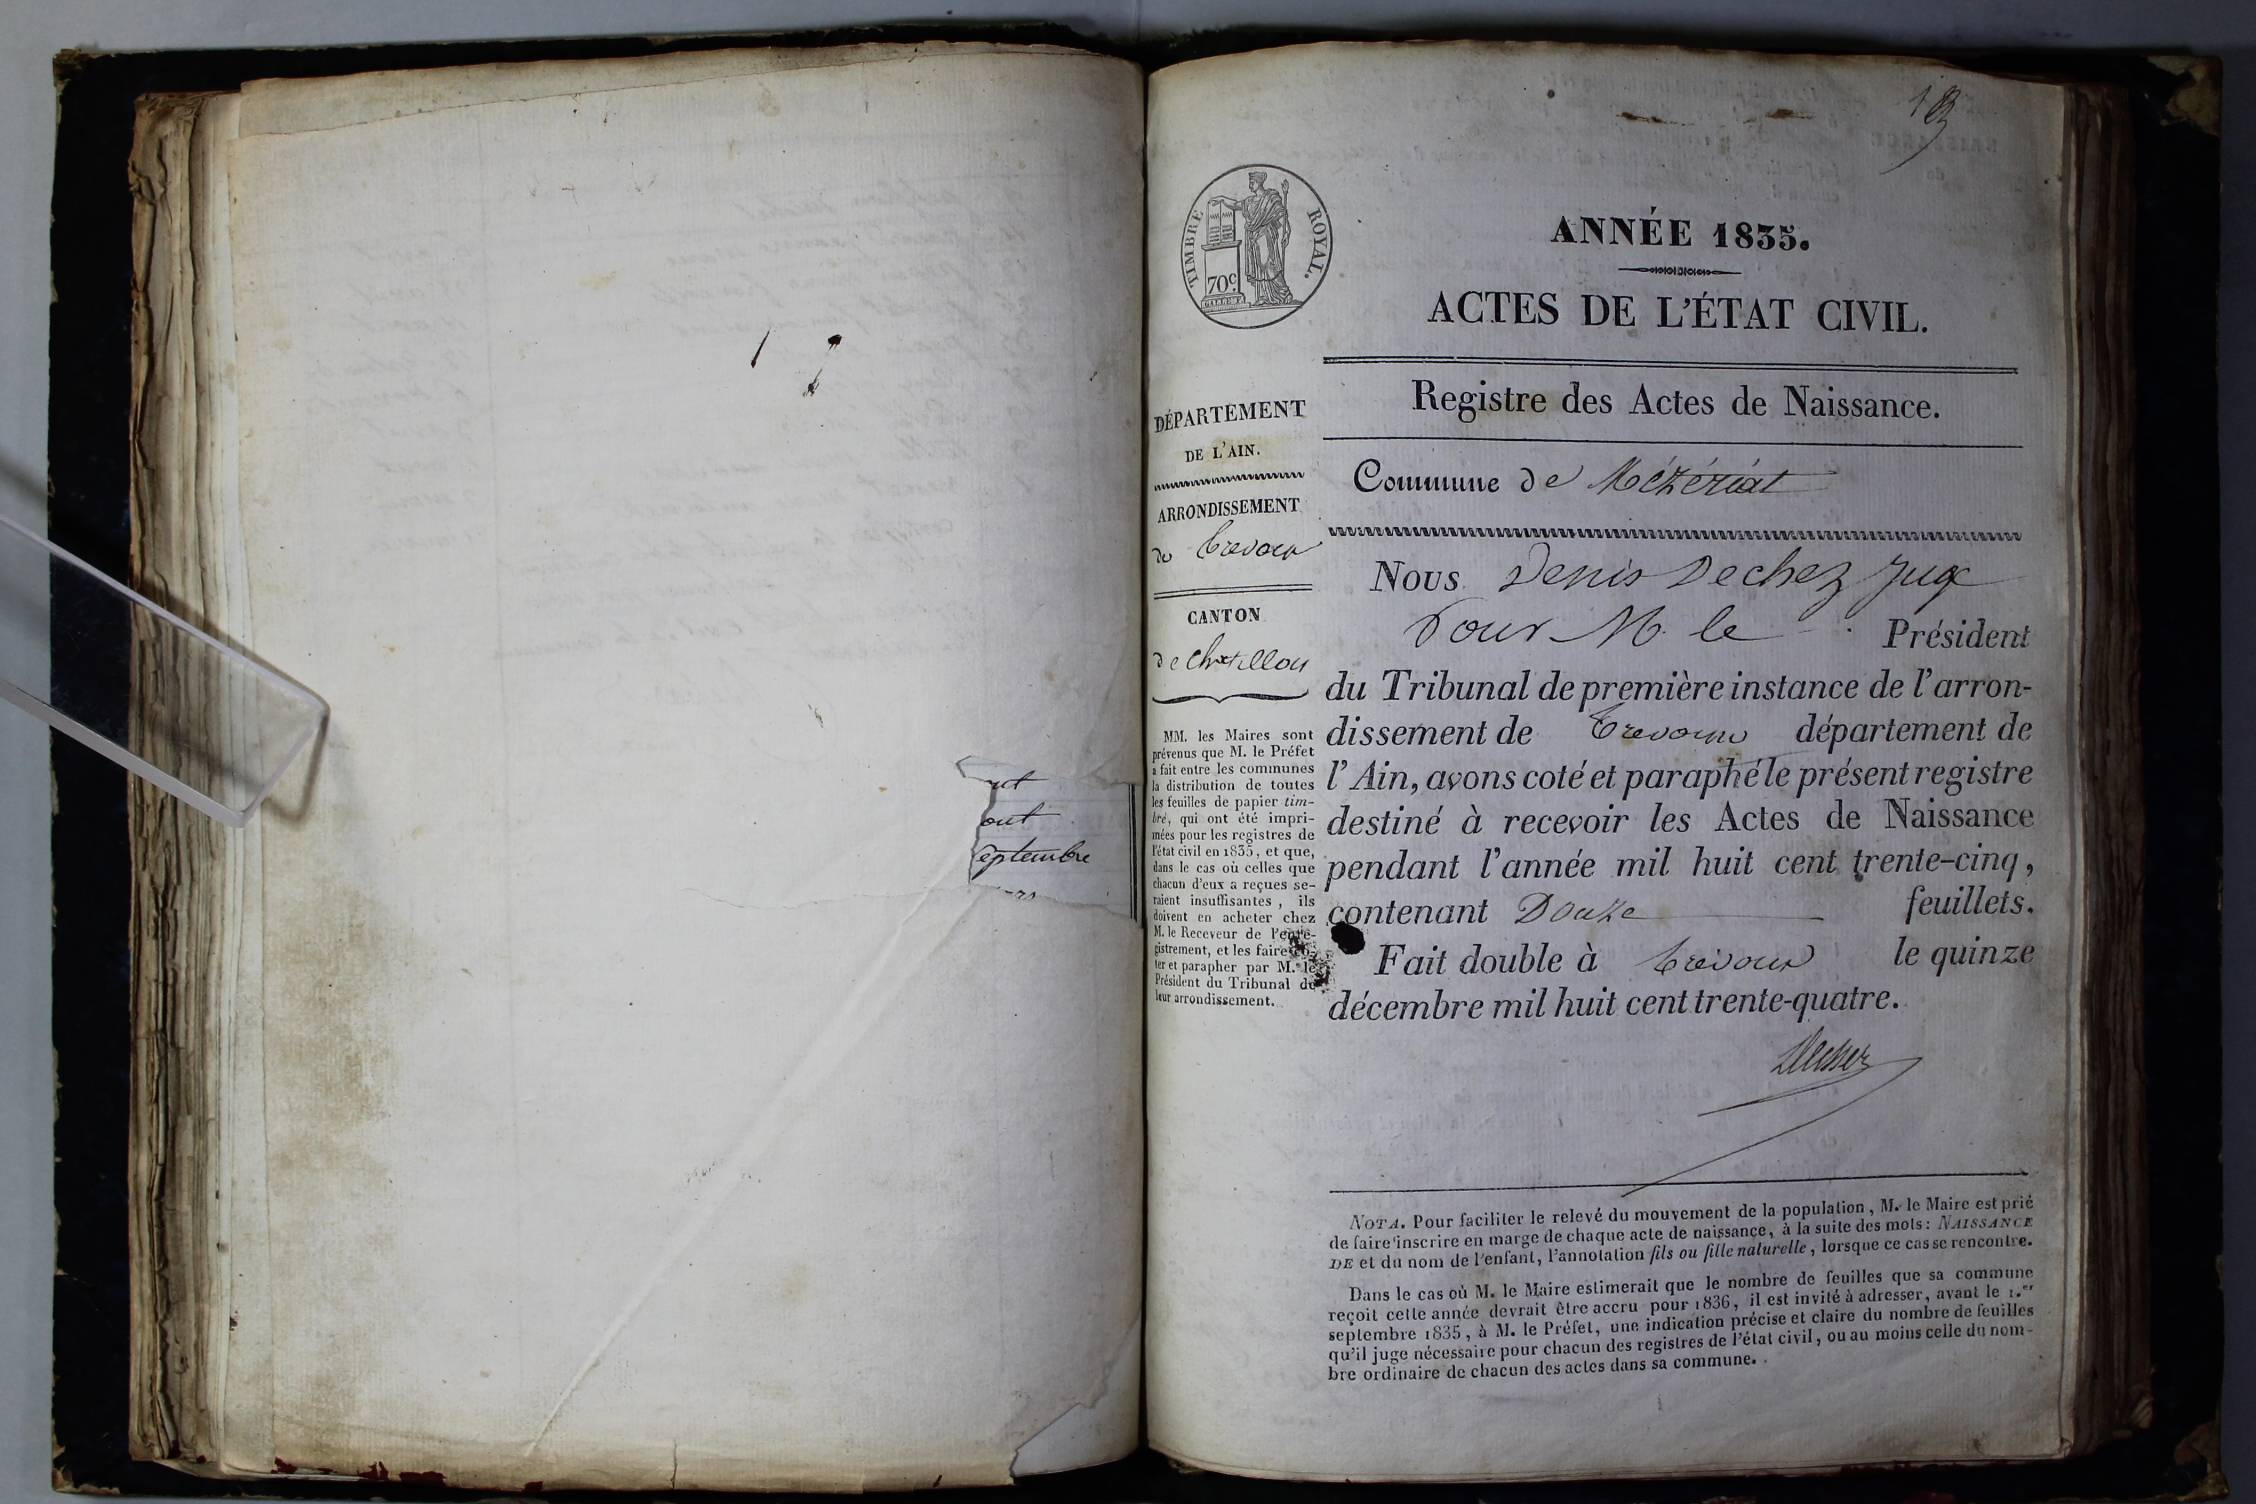 out
eptembre
TIMBRE ROYAL.
70c.
ANNÉE 1835.
ACTES DE L'ÉTAT CIVIL.
Registre des Actes de Naissance.
Commune de Mézériat
DÉPARTEMENT
DE L'AIN.
ARRONDISSEMENT
de Trevoux
CANTON
de Chatillon
MM. les Maires sont
prévenus que M. le Préfet
a fait entre les communes
la distribution de toutes
les feuilles de papier tim-
bré, qui ont été impri-
mées pour les registres de
l'état civil en 1835, et que,
dans le cas où celles que
chacun d'eux a reçues se-
raient insuffisantes, ils
doivent en acheter chez
M. le Receveur de l'enre-
gistrement, et les faire co-
ter et parapher par M. le
Président du Tribunal de
leur arrondissement.
Nous Denis Dechez Juge
Pour M. le Président
du Tribunal de première instance de l'arron-
dissement de Trevoux département de
l'Ain, avons coté et paraphé le présent registre
destiné à recevoir les Actes de Naissance
pendant l'année mil huit cent trente-cinq,
contenant Douze feuillets.
Fait double à Trévoux le quinze
décembre mil huit cent trente-quatre.
Dechez
NOTA. Pour faciliter le relevé du mouvement de la population, M. le Maire est prié
de faire inscrire en marge de chaque acte de naissance, à la suite des mots: NAISSANCE
DE et du nom de l'enfant, l'annotation fils ou fille naturelle, lorsque ce cas se rencontre.
Dans le cas où M. le Maire estimerait que le nombre de feuilles que sa commune
reçoit cette année devrait être accru pour 1836, il est invité à adresser, avant le 1.er
septembre 1835, à M. le Préfet, une indication précise et claire du nombre de feuilles
qu'il juge nécessaire pour chacun des registres de l'état civil, ou au moins celle du nom-
bre ordinaire de chacun des actes dans sa commune.